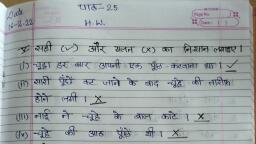 Date
16-11-22
पाठ-25
H.W.
सही (✓) और गलत (x) का निशान लगाइए।
(i) चूहा हर बार अपनी एक पूँछ कटवाता था। ✓
(ii) सारी पूँछें कट जाने के बाद चूहे की तारीफ
होने लगी। x
(iii) नाई ने चूहे के बाल काटे। x
(iv) चूहे की आठ पूँछें थी। x